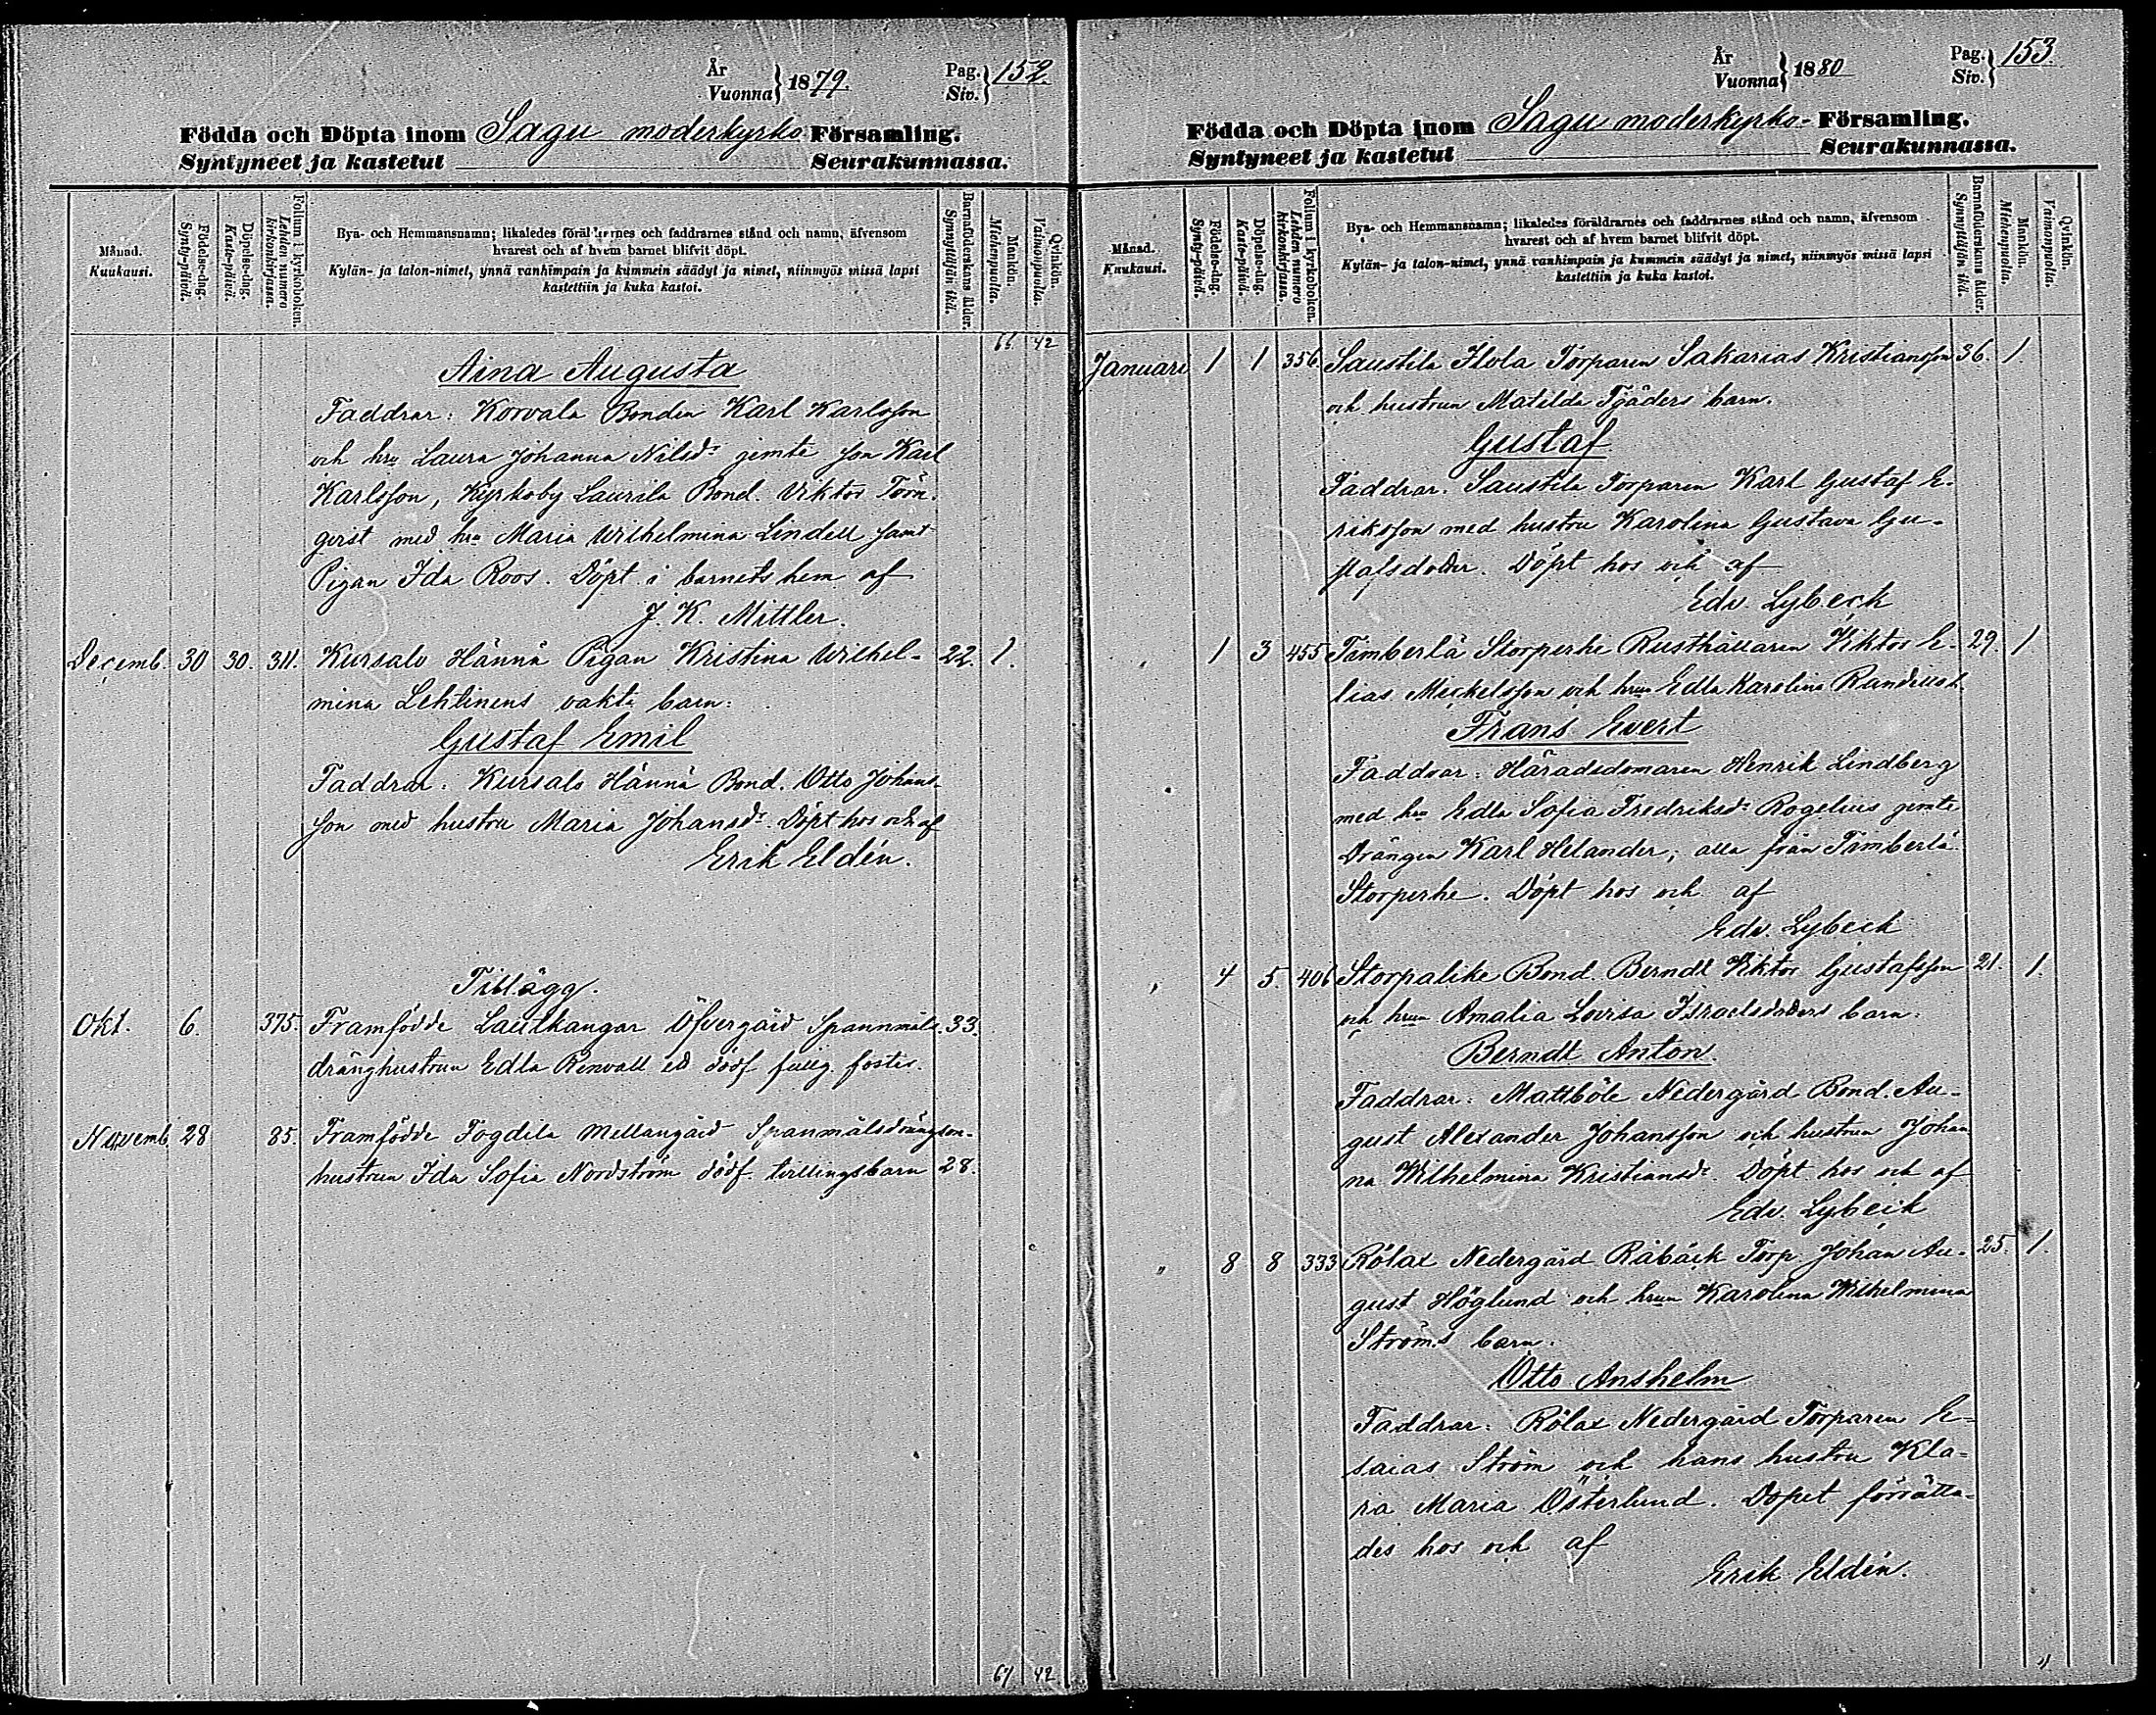 År
Vuonna } 1879.
Pag.
Siv. } 152
Födda och Döpta inom Sagu moderkyrko Församling.
Syntyneet ja kastetut Seurakunnassa.
Månad.
Kuukausi.
Födelse-dag.
Synty-päivä.
Döpelse-dag.
Kaste-päivä.
Folium i kyrkoboken.
Lehden numero
kirkonkirjassa.
Bya- och Hemmansnamn; likaledes föräldrarnes och faddrarnes stånd och namn, äfvensom
hvarest och af hvem barnet blifvit döpt.
Kylän- ja talon-nimet, ynnä vanhimpain ja kummein säädyt ja nimet, niinmyös missä lapsi
kastettiin ja kuka kastoi.
Barnaföderskans ålder.
Synnyttäjän ikä.
Mankön.
Miehenpuolta.
Qvinkön.
Vaimonpuolta.
66 42
Aina Augusta
Faddrar: Korvala Bonden Karl Karlsson
och hru Laura Johanna Nilsdr jemte son Karl
Karlsson, Kyrkoby Laurila Bond. Viktor Törn-
qvist med hru Maria Wilhelmina Lindell samt
Pigan Ida Roos. Döpt i barnets hem af
J. K. Mittler.
Decemb. 30 30. 311. Kursalo Hännä Pigan Kristina Wilhel- 22. 1.
mina Lehtinens oäkta barn:
Gustaf Emil
Faddrar: Kursalo Hännä Bond. Otto Johans-
son med hustru Maria Johansdr. Döpt hos och af
Erik Eldén.
Tillägg.
Okt. 6. 375. Framfödde Lautkangar Öfvergård Spannmåls- 33.
dränghustrun Edla Renvall ett dödf. fullg. foster.
Novemb. 28 85. Framfödde Fogdila Mellangård Spanmålsdrängson-
hustrun Ida Sofia Nordström dödf. tvillingsbarn 28.
67 42
År
Vuonna } 1880
Pag.
Siv. } 153.
Födda och Döpta inom Sagu moderkyrko- Församling.
Syntyneet ja kastetut Seurakunnassa.
Månad.
Kuukausi.
Födelse-dag.
Synty-päivä.
Döpelse-dag.
Kaste-päivä.
Folium i kyrkoboken.
Lehden numero
kirkonkirjassa.
Bya- och Hemmansnamn; likaledes föräldrarnes och faddrarnes stånd och namn, äfvensom
hvarest och af hvem barnet blifvit döpt.
Kylän- ja talon-nimet, ynnä vanhimpain ja kummein säädyt ja nimet, niinmyös missä lapsi
kastettiin ja kuka kastoi.
Barnaföderskans ålder.
Synnyttäjän ikä.
Mankön.
Miehenpuolta.
Qvinkön.
Vaimonpuolta.
Januari 1 1 356. Saustila Torparen Sakarias Kristiansson 36. 1.
och hustrun Matilda Tjäders barn.
Gustaf
Faddrar: Saustila Torparen Karl Gustaf E-
riksson med hustru Karolina Gustava Gu-
stafsdoder. Döpt hos och af
Edv. Lybeck
" 1 3 455 Timberlä Storperhe Rusthållaren Viktor E- 29. 1
lias Mickelsson och hrun Edla Karolina Randells b.
Frans Evert
Faddrar: Häradsdomaren Henrik Lindberg
med hru Edla Sofia Fredriksdr Rogelius jemte
Drängen Karl Helander; alla från Timberlä
Storperhe. Döpt hos och af
Edv. Lybeck
" 4 5. 406 Storpalike Bond. Berndt Viktor Gustafsson 21. 1.
och hrun Amalia Lovisa Israelsdoders barn:
Berndt Anton.
Faddrar: Mattböle Nedergård Bond. Au-
gust Alexander Johansson och hustrun Johan
na Wilhelmina Kristiansdr. Döpt hos och af
Edv. Lybeck
" 8 8 333 Rölax Nedergård Råbäck Torp. Johan Au- 25. 1.
gust Höglund och hrun Karolina Wilhelmina
Ströms barn.
Otto Anshelm
Faddrar: Rölax Nedergård Torparen E-
saias Ström och hans hustru Kla-
ra Maria Österlund. Dopet förrätta-
des hos och af
Erik Eldén.